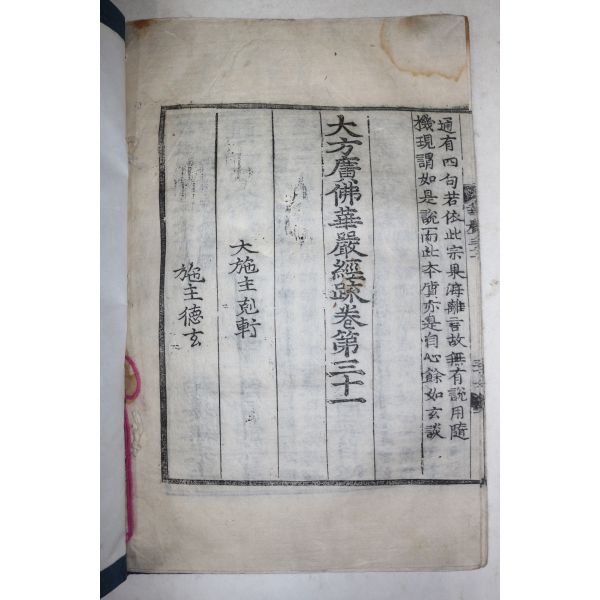 通有四句若依此宗果海離言故無有說用隨
機現謂如是說而此本質亦是自心餘如玄談
大方廣佛華嚴經䟽卷第三十一
大施主剋軒
施主德玄